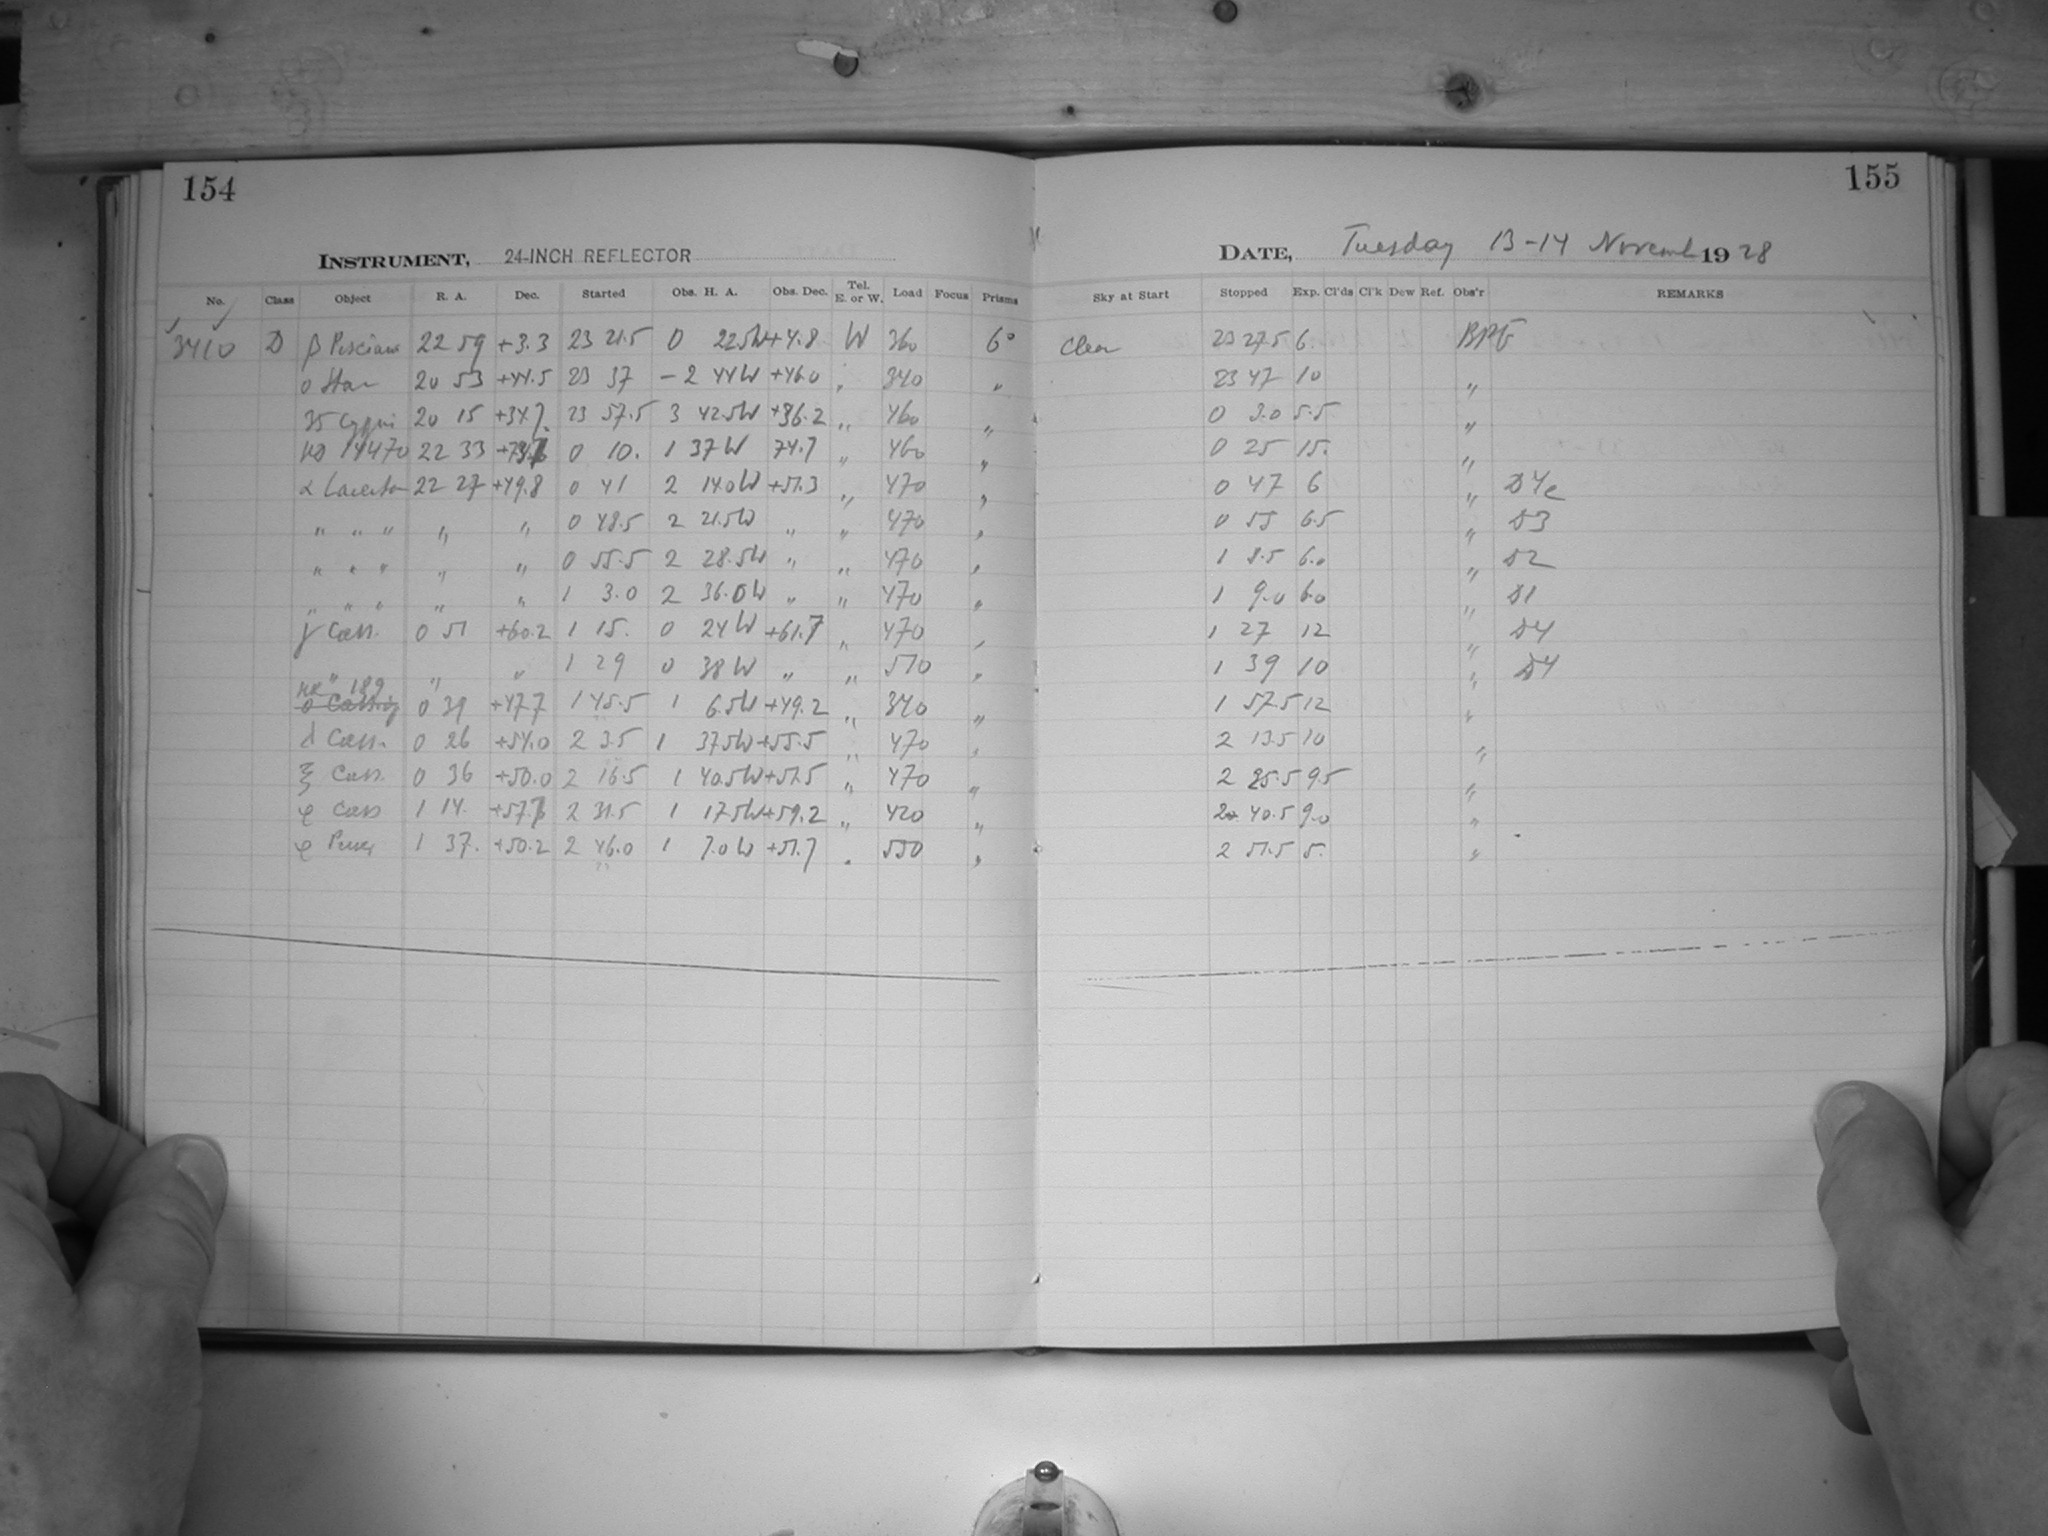 154
155
INSTRUMENT, 24-INCH REFLECTOR
DATE, Tuesday 13-14 Novemb 1928
No. Class Object R. A. Dec. Started Obs. H. A. Obs. Dec. Tel. E. or W. Load Focus Prisms Sky at Start Stopped Exp. Cl'ds Cl'k Dew Ref. Obs'r REMARKS
3410 D β Piscium 22 59 +3.3 23 21.5 0 22.5W +4.8 W 360 6° Clear 23 27.5 6. BPG
0 Star 20 53 +44.5 23 37 -2 44W +46.0 " 340 " 23 47 10 "
35 Cygni 20 15 +34.7 23 57.5 3 42.5W +36.2 " 460 " 0 3.0 5.5 "
HD 14470 22 33 0 10. 1 37W 74.7 " 460 " 0 25 15. "
α Lacertae 22 27 +49.8 0 41 2 14.0W +51.3 " 470 " 0 47 6 " D4e
" " " " " 0 48.5 2 21.5W " " 470 " 0 55 6.5 " D3
" " " " " 0 55.5 2 28.5W " " 470 " 1 8.5 6.0 " D2
" " " " " 1 3.0 2 36.0W " " 470 " 1 9.0 6.0 " D1
γ Cass. 0 51 +60.2 1 15. 0 24W +61.7 " 470 " 1 27 12 " D4
" " " 1 29 0 38W " " 510 " 1 39 10 " D4
HR 189
o Cassiop 0 39 +47.7 1 45.5 1 6.5W +49.2 " 340 " 1 57.5 12 "
λ Cass. 0 26 +54.0 2 3.5 1 37.5W +55.5 " 470 " 2 13.5 10 "
ξ Cass. 0 36 +50.0 2 16.5 1 40.5W +51.5 " 470 " 2 25.5 9.5 "
φ Cass 1 14. 2 31.5 1 17.5W +59.2 " 420 " 2 40.5 9.0 "
φ Persei 1 37. +50.2 2 46.0 1 7.0W +51.7 " 550 " 2 51.5 5. "